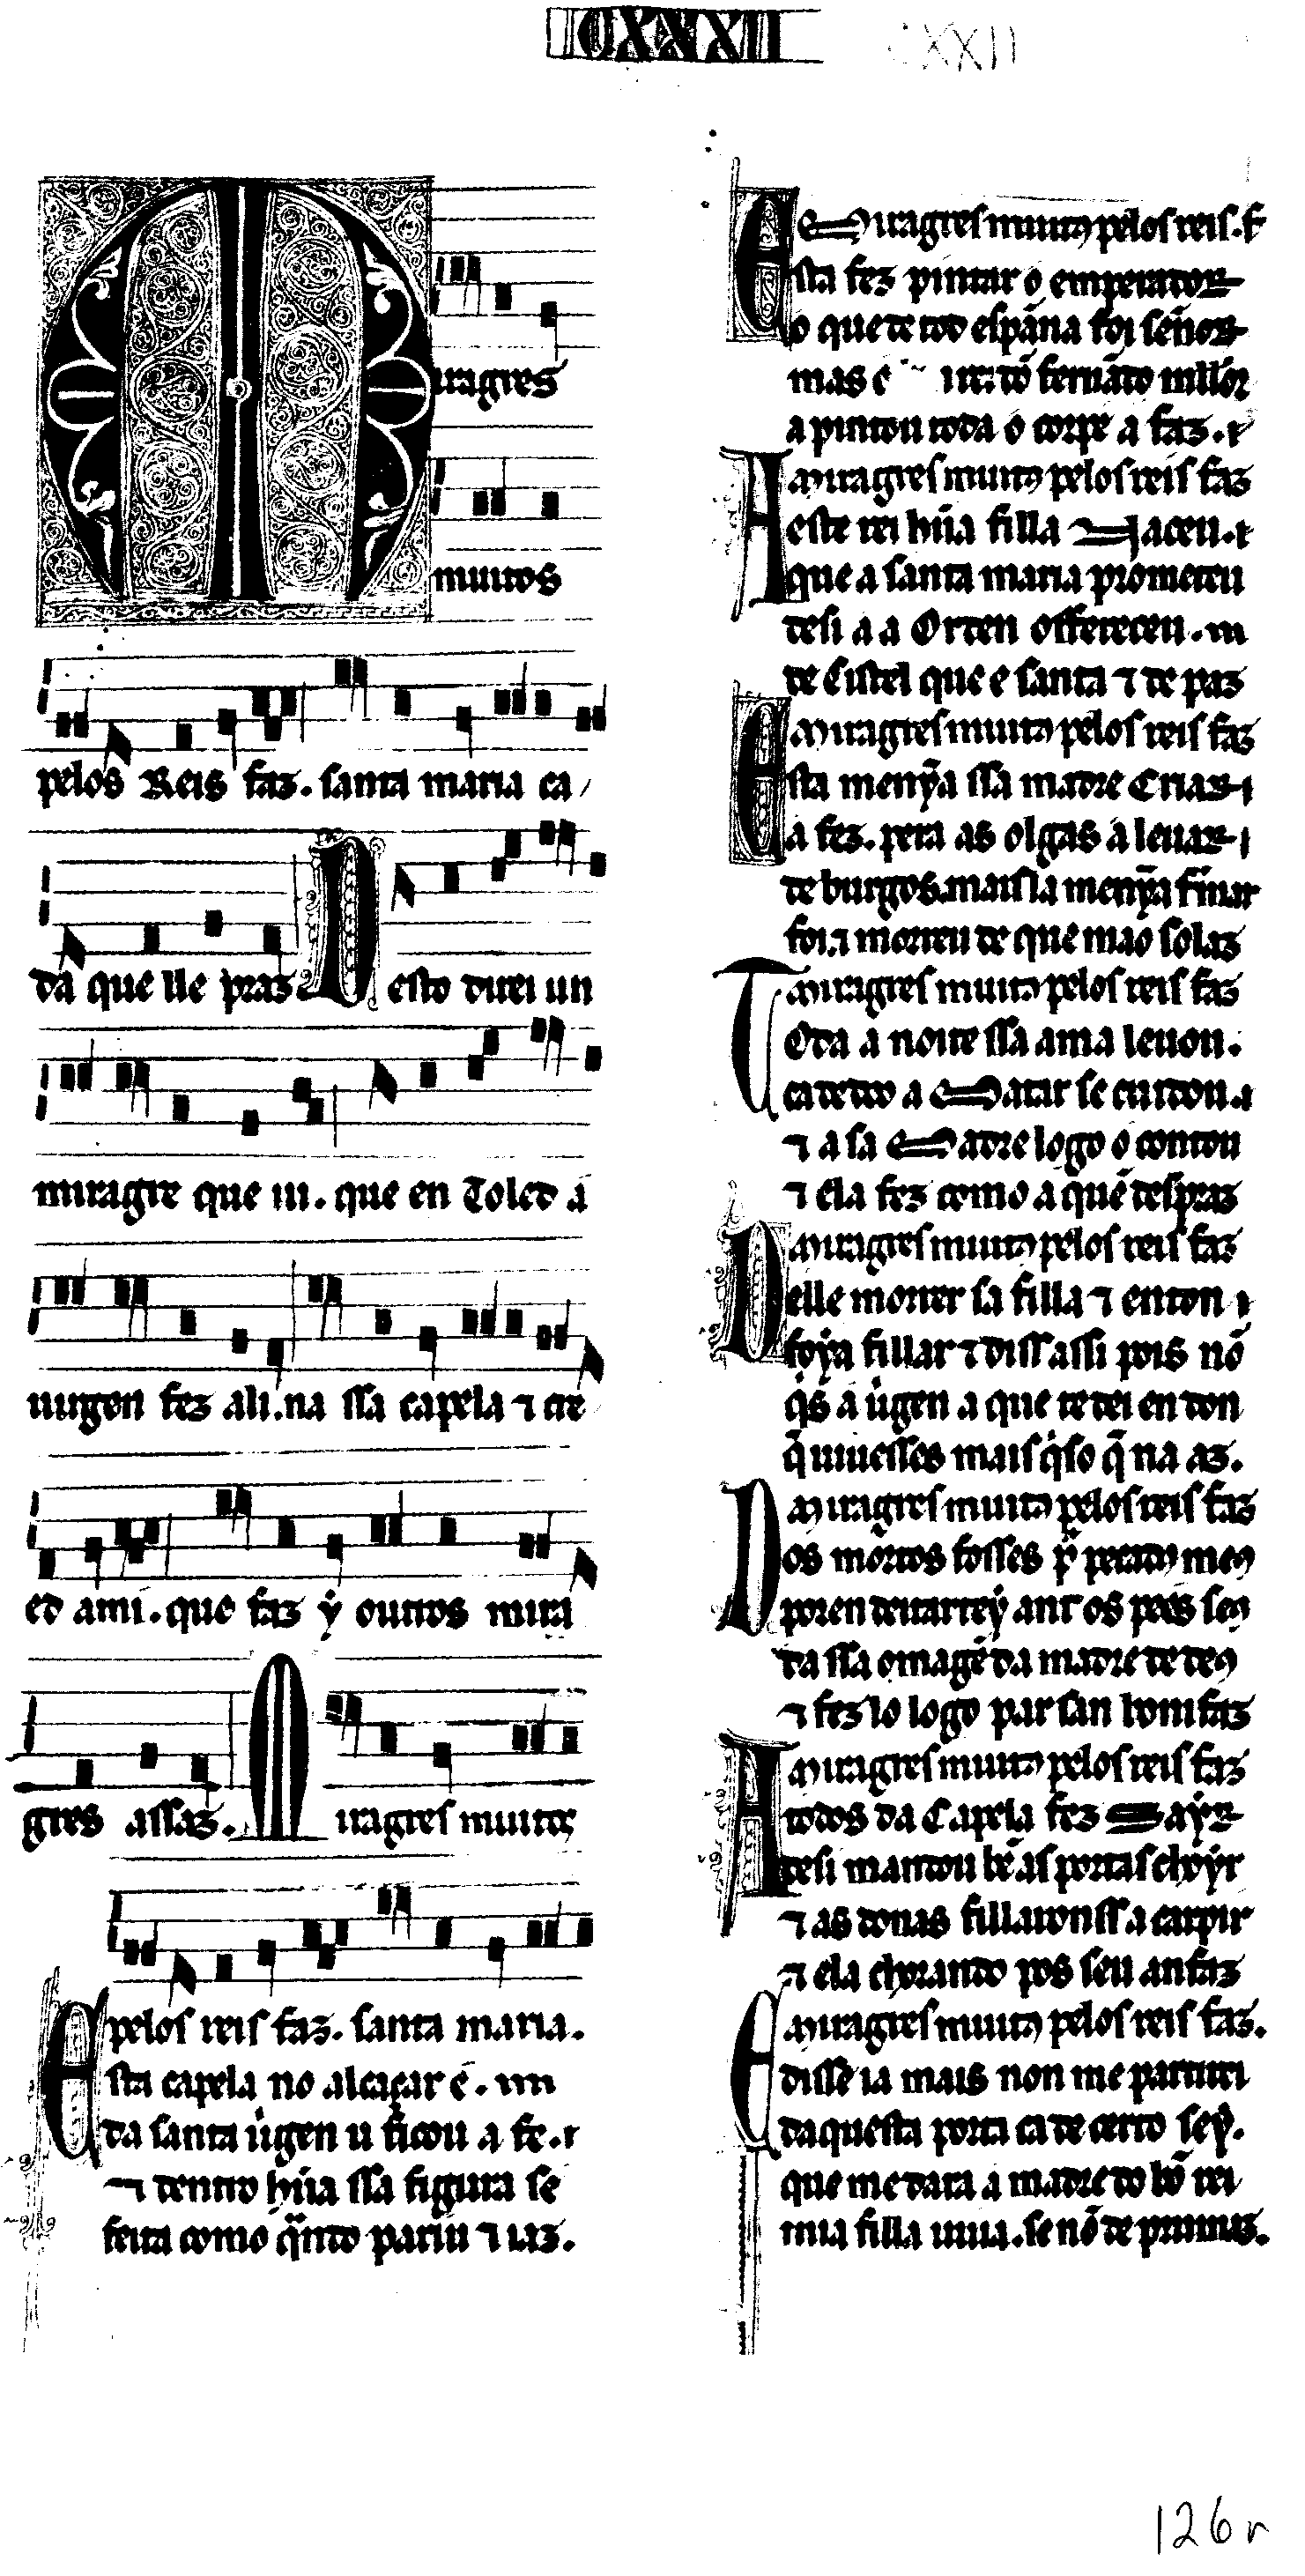 CXXII
Miragres
muitos
pelos Reis faz. santa maria ca
da que lle praz Desto direi un
miragre que ui. que en Toled a
uirgen fez ali. na ssa capela ⁊ cre
ed a mi. que faz y outros mira
gres assaz. Miragres muitos
pelos reis faz. santa maria.
Esta capela no alcaçar é.
da santa uirgen u ficou a fe.
⁊ dentro hũa ssa figura se
feita como quando pariu ⁊ iaz.
Miragres muitos pelos reis. f
Esta fez pintar o emperador
o que de tod espãna foi sẽnor
mas fernãdo mllor
a pintou toda o corpe a faz.
Miragres muitos pelos reis faz
A este rei hũa filla naceu.
que a santa maria prometeu
desi a a Orden offereceu.
de Cistel que e santa ⁊ de paz
Miragres muitos pelos reis faz
Esta menỹa ssa madre Criar
a fez. pera as olgas a leuar
de burgos. mais la menỹa fĩnar
foi. ⁊ morreu de que mao solaz
Miragres muitos pelos reis faz
Toda a noite ssa ama leuou.
ca dedo a Matar se cuidou.
⁊ a sa Madre logo o contou
⁊ ela fez como a quẽ despraz
Miragres muitos pelos reis faz
Delle morrer sa filla ⁊ enton
foỹa fillar ⁊ diss assi pois nõ
q̇s a uirgen a que te dei en don
q̃ uiuesses mais q̇so q̃ na az.
Miragres muitos pelos reis faz
Dos mortos fosses pecados meus
poren deitarteỹ ant os pees seus
da ssa omagẽ da madre de deus
⁊ fez lo logo par san bonifaz
Miragres muitos pelos reis faz
A todos da Capela fez Sayr
desi mandou bẽ as portas choyr
⁊ as donas fillaronss a carpir
⁊ ela chorando pos seu anfaz
Miragres muitos pelos reis faz.
E disse ia mais non me partirei
daquesta porta ca de certo seỹ.
que me dara a madre do bõ rei
mia filla uiua. se nõ de prumaz.
126 r